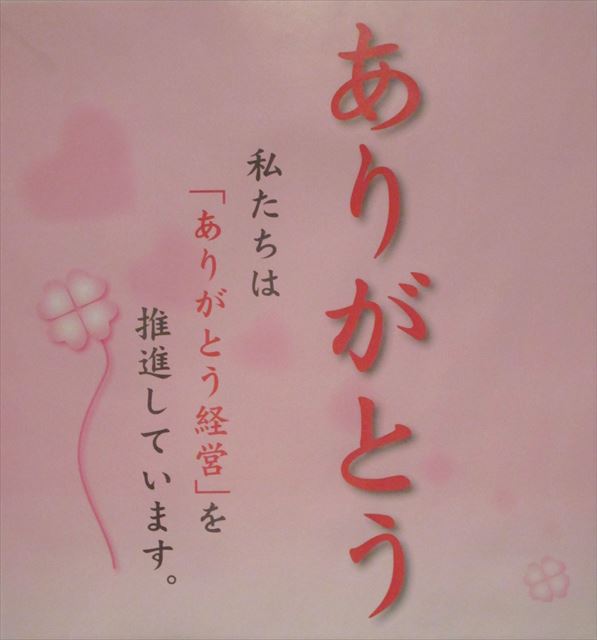 ありがとう
私たちは
「ありがとう経営」を
推進しています。